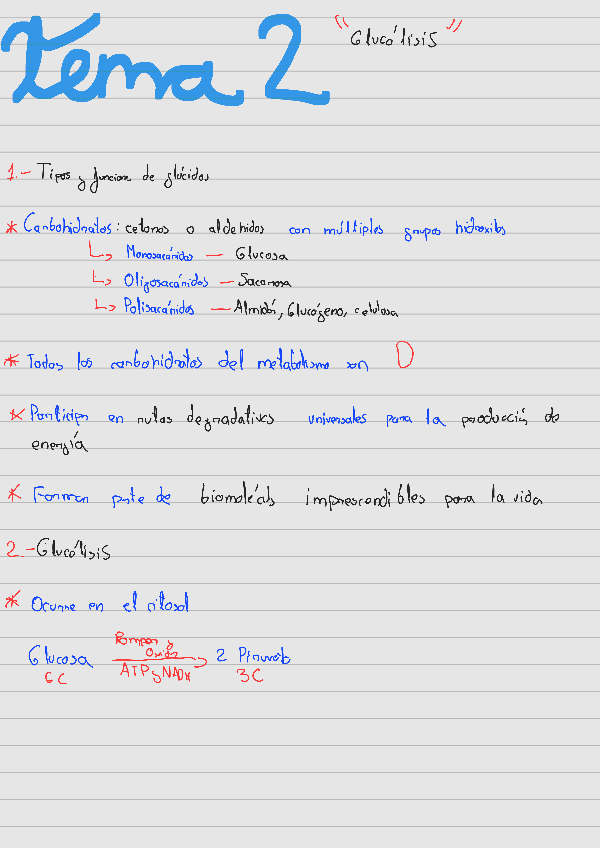 Tema 2 "Glucólisis"
1.- Tipos y funciones de glúcidos
* Carbohidratos: cetonas o aldehidos con múltiples grupos hidroxilos
↳ Monosacáridos — Glucosa
↳ Oligosacáridos — Sacarosa
↳ Polisacáridos — Almidón, Glucógeno, celulosa
* Todos los carbohidratos del metabolismo son D
* Participan en rutas degradativas universales para la producción de
energía
* Forman parte de biomoléculas imprescindibles para la vida
2.- Glucólisis
* Ocurre en el citosol
Rompen y
Oxidan
Glucosa → 2 Piruvato
ATP y NADH
6C 3C